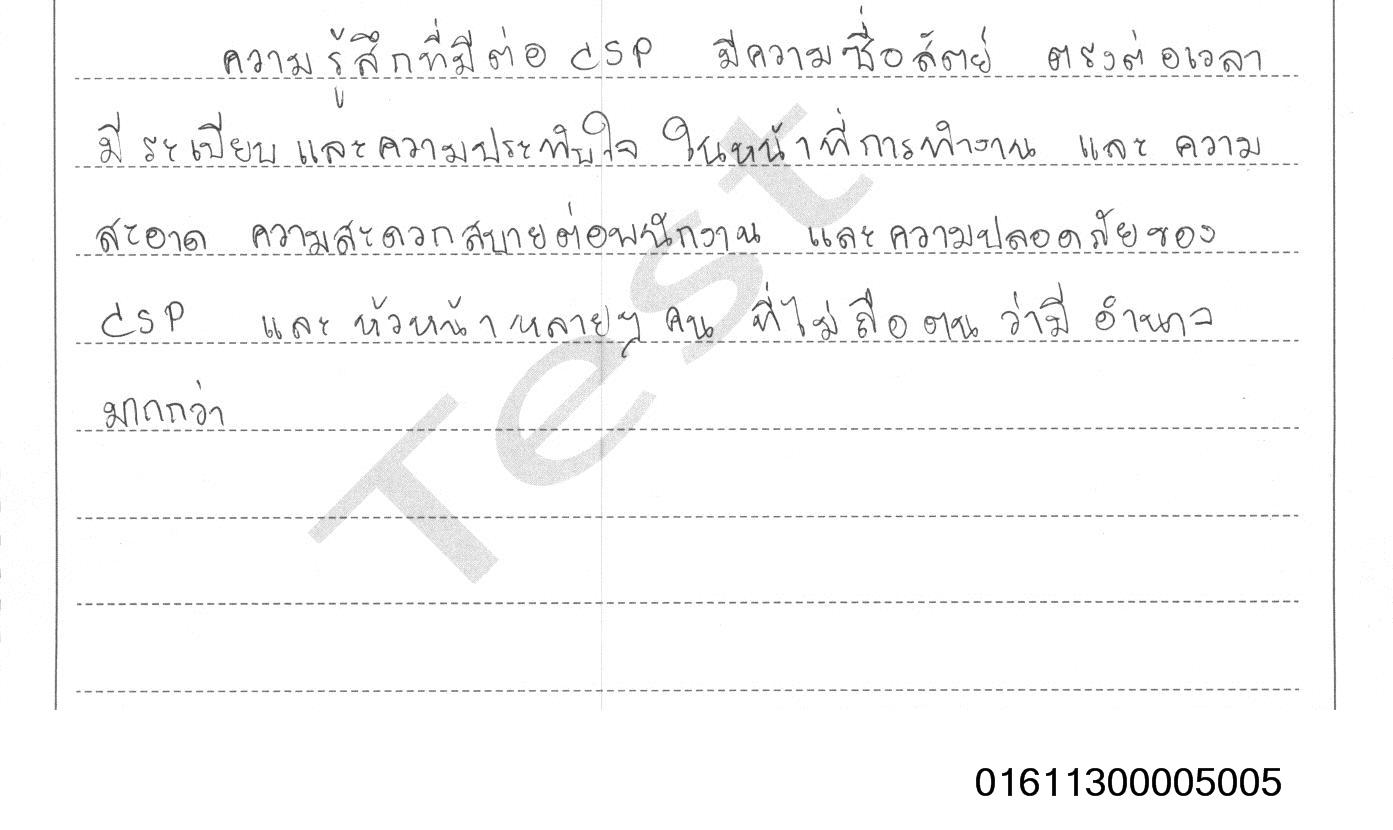 ความรู้สึกที่มีต่อ CSP มีความซื่อสัตย์ ตรงต่อเวลา
มีระเบียบและความประทับใจ ในหน้าที่การทำงาน และ ความ
สะอาด ความสะดวกสบายต่อพนักงาน และความปลอดภัยของ
CSP และ หัวหน้าหลายๆ คน ที่ไม่ถือตน ว่ามี อำนาจ
มากกว่า
Test
01611300005005